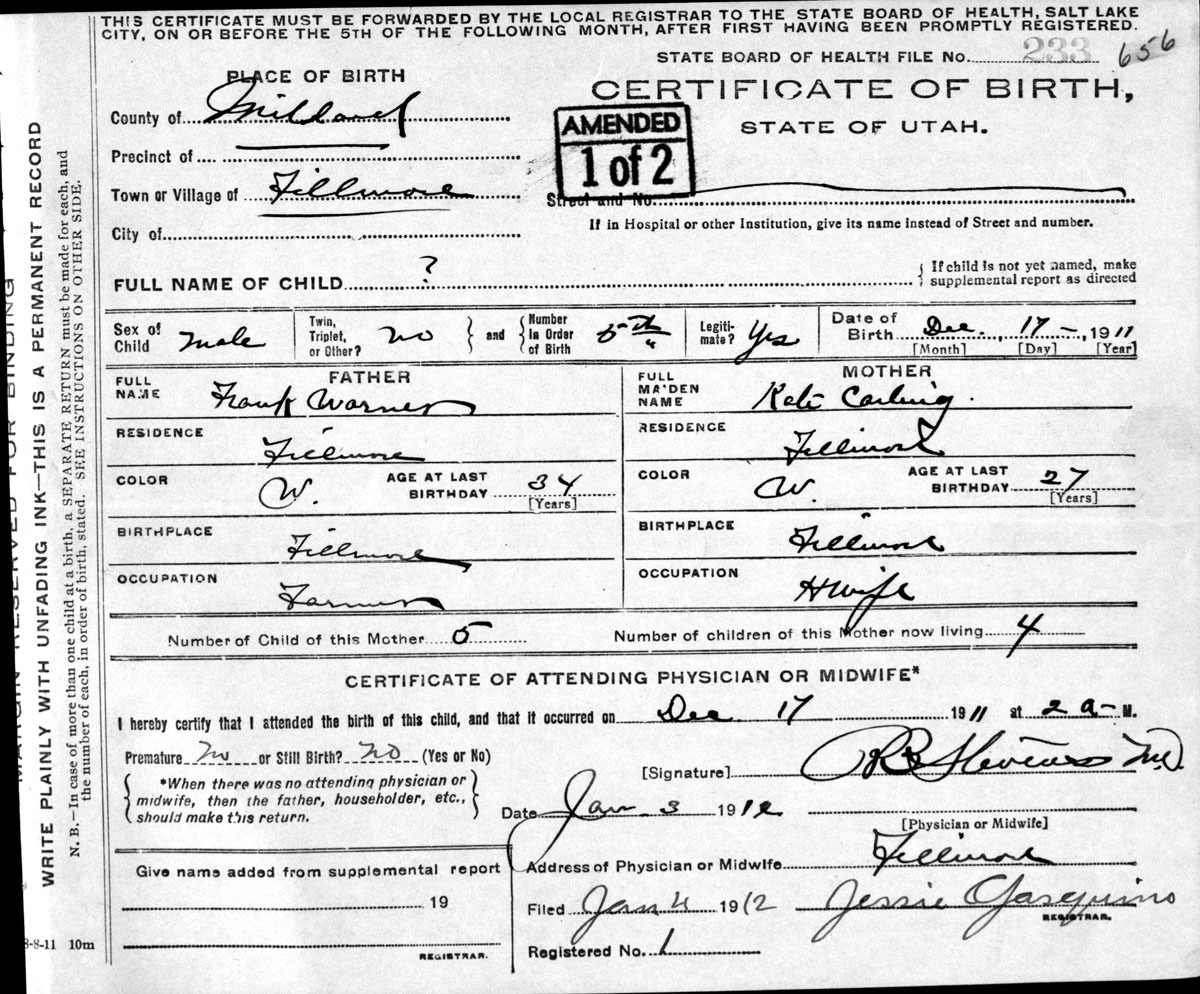 THIS CERTIFICATE MUST BE FORWARDED BY THE LOCAL REGISTRAR TO THE STATE BOARD OF HEALTH, SALT LAKE
CITY, ON OR BEFORE THE 5TH OF THE FOLLOWING MONTH, AFTER FIRST HAVING BEEN PROMPTLY REGISTERED.
STATE BOARD OF HEALTH FILE No. 233 656
PLACE OF BIRTH
CERTIFICATE OF BIRTH,
STATE OF UTAH.
AMENDED
1 of 2
County of Millard
Precinct of
Town or Village of Fillmore
Street and No.
City of
If in Hospital or other Institution, give its name instead of Street and number.
FULL NAME OF CHILD ?
{ If child is not yet named, make
supplemental report as directed
Sex of Child Male
Twin, Triplet, or Other? No } and { Number In Order of Birth 5th
Legiti-mate? Yes
Date of Birth Dec. 17 - , 1911
[Month] [Day] [Year]
FATHER
FULL NAME Frank Warner
RESIDENCE Fillmore
COLOR W. AGE AT LAST BIRTHDAY 34
[Years]
BIRTHPLACE Fillmore
OCCUPATION Farmer
MOTHER
FULL MAIDEN NAME Kate Carling.
RESIDENCE Fillmore
COLOR W. AGE AT LAST BIRTHDAY 27
[Years]
BIRTHPLACE Fillmore
OCCUPATION HWife
Number of Child of this Mother 5
Number of children of this Mother now living 4
CERTIFICATE OF ATTENDING PHYSICIAN OR MIDWIFE*
I hereby certify that I attended the birth of this child, and that it occurred on Dec 17 1911 at 2 a- M.
Premature No or Still Birth? No (Yes or No)
{ *When there was no attending physician or
midwife, then the father, householder, etc.,
should make this return. }
[Signature] Stevens M.D.
Date Jan 3 1912
[Physician or Midwife]
Address of Physician or Midwife Fillmore
Filed Jan 4 1912 Jessie
REGISTRAR.
Registered No. 1
Give name added from supplemental report
19
REGISTRAR.
8-8-11 10m
MARGIN RESERVED FOR BINDING
WRITE PLAINLY WITH UNFADING INK—THIS IS A PERMANENT RECORD
N. B.—In case of more than one child at a birth, a SEPARATE RETURN must be made for each, and
the number of each, in order of birth, stated. SEE INSTRUCTIONS ON OTHER SIDE.